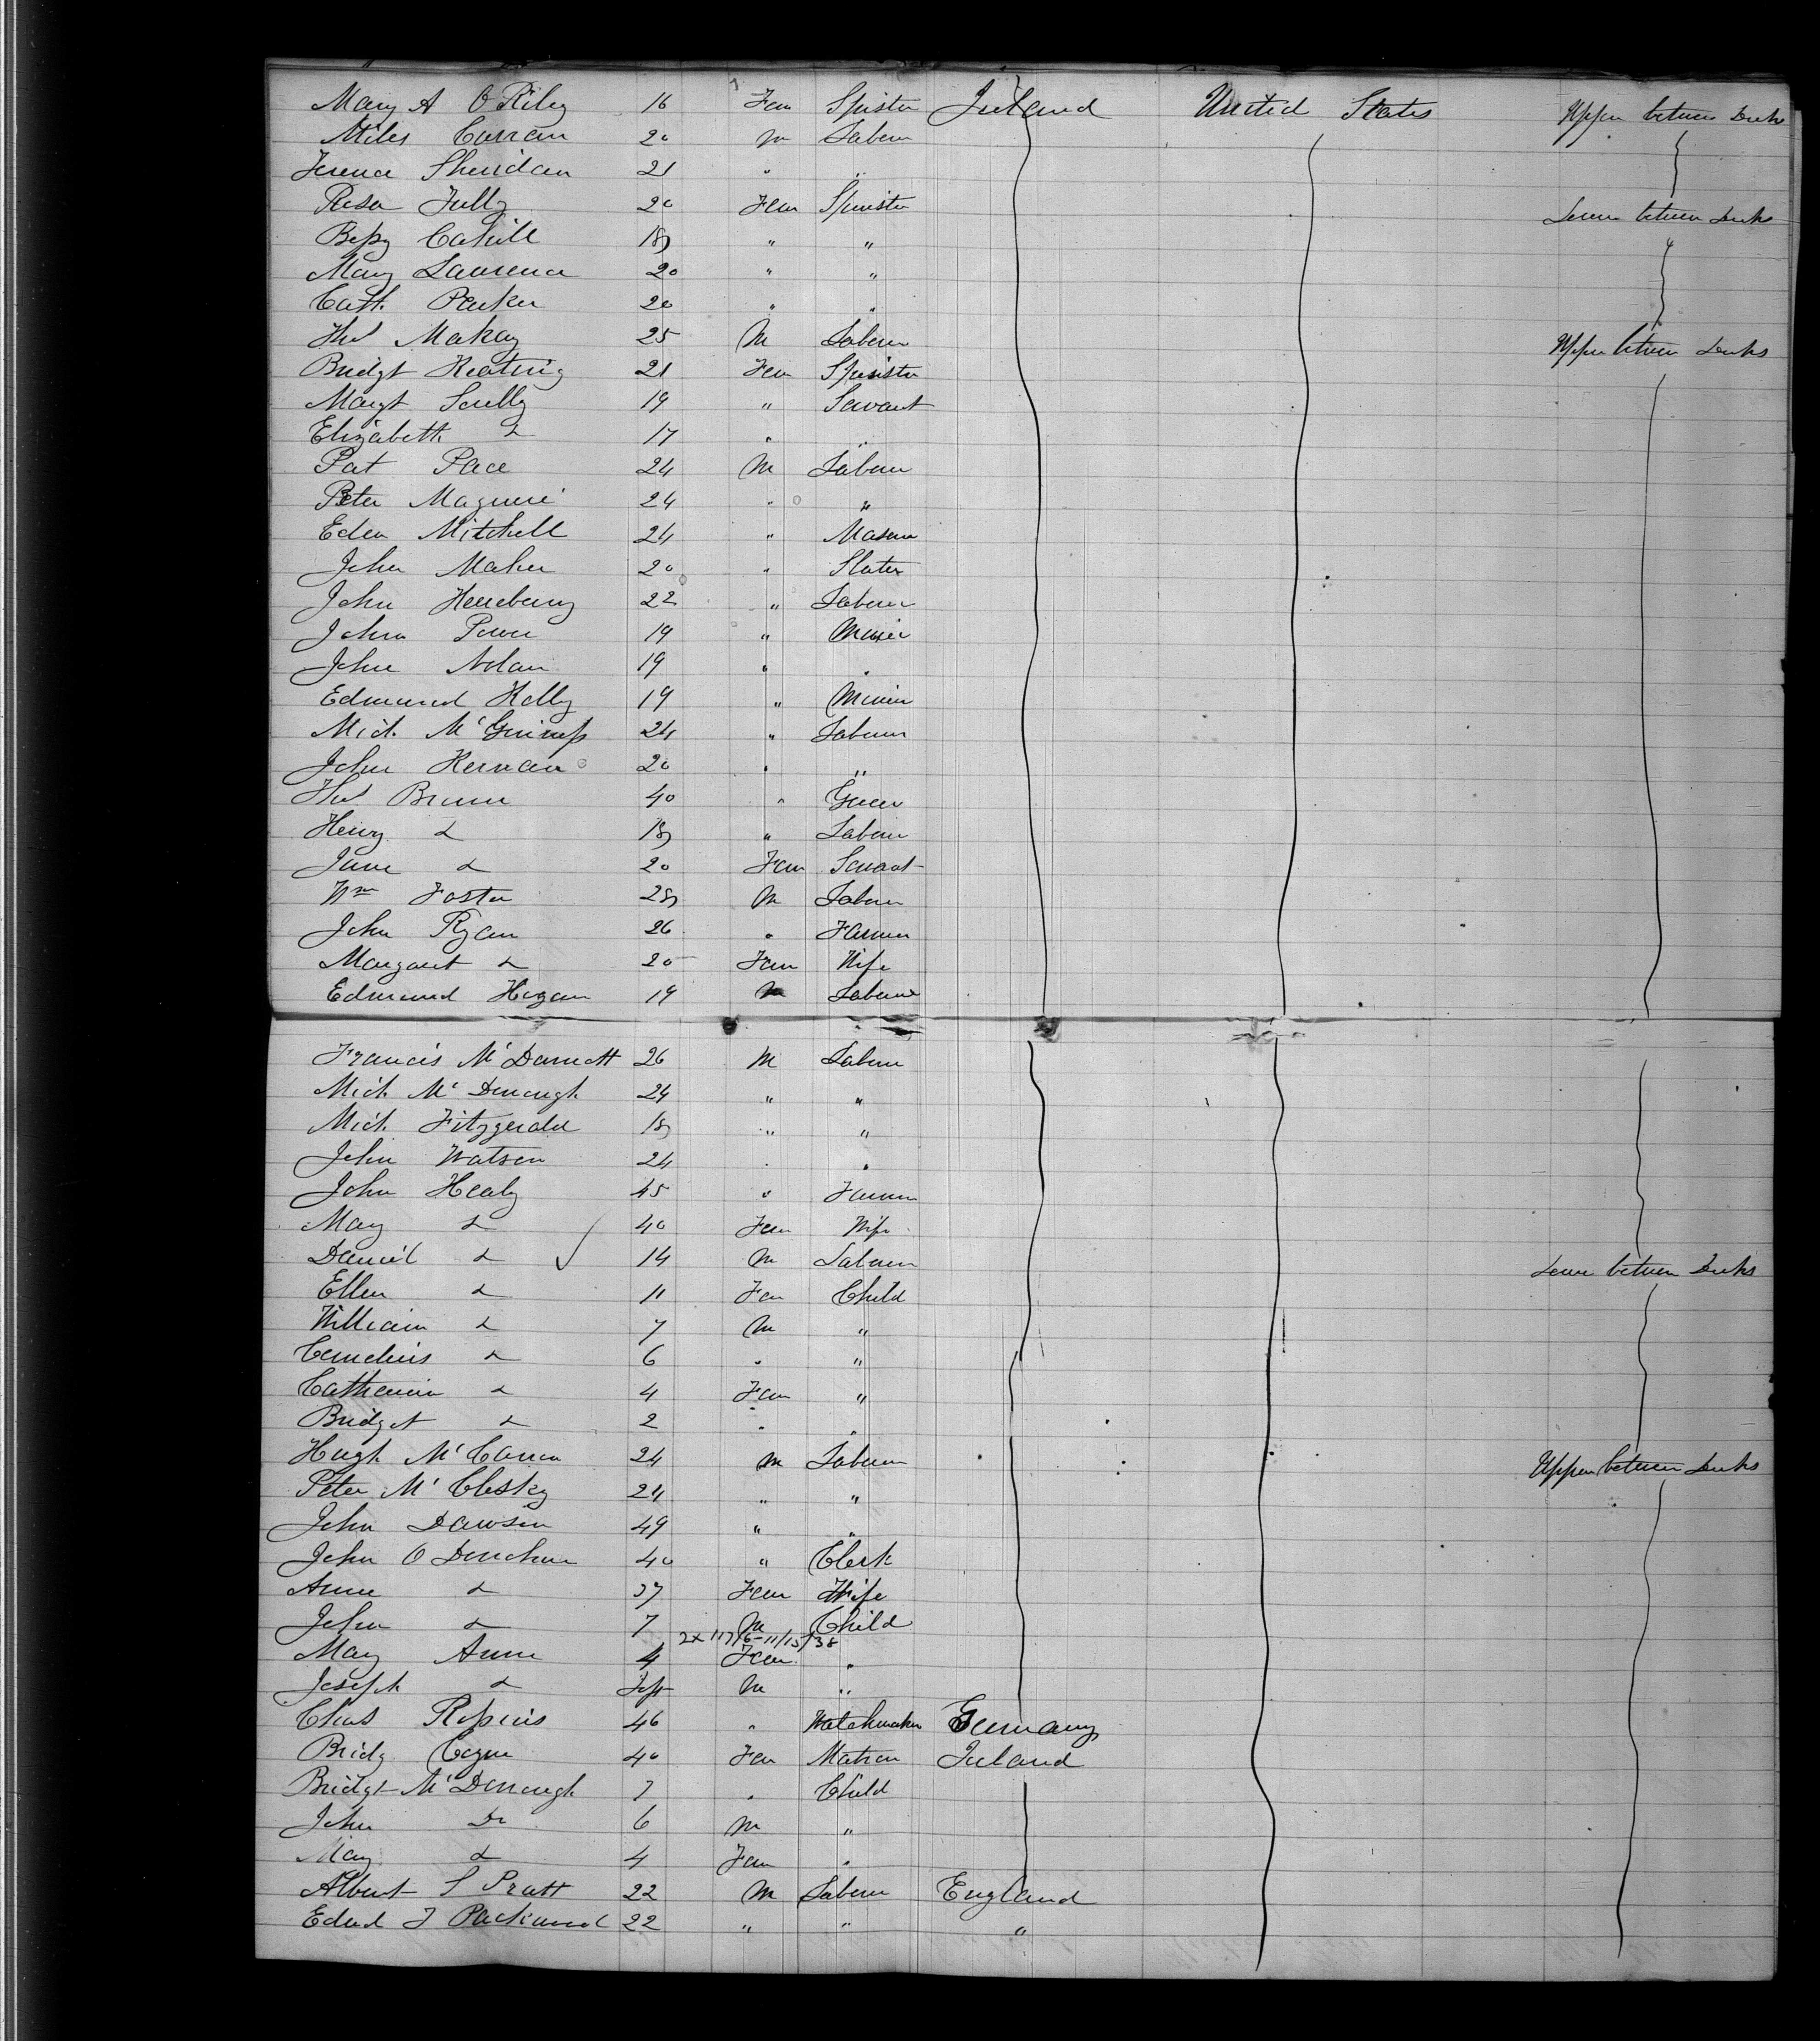 Mary A O Riley 16 Fem Spinster Ireland United States Upper between Decks
Miles Curran 20 M Laborer
Terence Sheridan 21 " "
Rosa Tully 20 Fem Spinster Lower between Decks
Bessy Cahill 18 " "
Mary Laurence 20 " "
Cath. Parker 20 " "
Thos Makay 25 M Laborer Upper between Decks
Bridgt Keating 21 Fem Spinster
Margt Scully 19 " Servant
Elizabeth Do 17 " "
Pat Pace 24 M Laborer
Peter Maguire 24 " "
Eden Mitchell 24 " Mason
John Maher 20 " Slater
John Henebury 22 " Laborer
John Power 19 " Miner
John Nolan 19 " "
Edmund Kelly 19 " Miner
Mich. McGuiness 24 " Laborer
John Kernan 20 " "
Thos Brown 40 " Grocer
Henry Do 18 " Laborer
Jane Do 20 Fem Servant
Wm Foster 28 M Laborer
John Ryan 26 " Farmer
Margaret Do 20 Fem Wife
Edmund Hogan 19 M Laborer
Francis McDarnott 26 M Laborer
Mich. McDonough 24 " "
Mich. Fitzgerald 18 " "
John Watson 24 " "
John Healy 45 " Farmer
Mary Do 40 Fem Wife
Daniel Do 14 M Laborer Lower between Decks
Ellen Do 11 Fem Child
William Do 7 M "
Cornelius Do 6 " "
Catherine Do 4 Fem "
Bridget Do 2 " "
Hugh McCarron 24 M Laborer Upper between Decks
Peter McClosky 24 " "
John Dawson 49 " "
John O Donohue 40 " Clerk
Anne Do 37 Fem Wife
John Do 7 M Child
11/15/38
Mary Anne 4 Fem "
Joseph Do Inft M "
Chas 46 " Watchmaker Germany
Bridg Coyne 40 Fem Matron Ireland
Bridgt McDonough 7 " Child
John Do 6 M "
Mary Do 4 Fem "
Albert S Pratt 22 M Laborer England
Edwd J Packwood 22 " " "